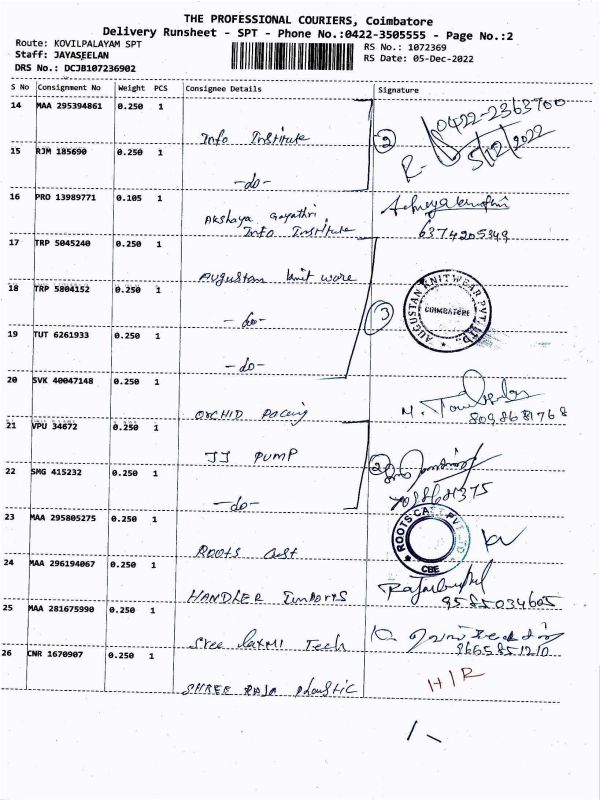 THE PROFESSIONAL COURIERS, Coimbatore
Delivery Runsheet - SPT - Phone No.:0422-3505555 - Page No.:2
Route: KOVILPALAYAM SPT
RS No.: 1072369
Staff: JAYASEELAN
RS Date: 05-Dec-2022
DRS No.: DCJB107236902
S No Consignment No Weight PCS Consignee Details Signature
14 MAA 295394861 0.250 1
Info Institute
2
R- 0422-2363700
5/12/2022
15 RJM 185690 0.250 1
-do-
16 PRO 13989771 0.105 1
Akshaya Gayathri
Info Institute
6374205349
17 TRP 5045240 0.250 1
Augustan knit ware
18 TRP 5804152 0.250 1
-do-
3
AUGUSTAN KNITWEAR PVT. LTD.
COIMBATORE
19 TUT 6261933 0.250 1
-do-
20 SVK 40047148 0.250 1
ORCHID Pacing
8098681768
21 VPU 34672 0.250 1
JJ PUMP
2
22 SMG 415232 0.250 1
-do-
23 MAA 295805275 0.250 1
Roots Cast
ROOTS CAST PVT LTD
CBE
24 MAA 296194067 0.250 1
HANDLER Imports
9585034605
25 MAA 281675990 0.250 1
Sree laxmi Tech
26 CNR 1670907 0.250 1
SHREE RAJA plastic
H/R